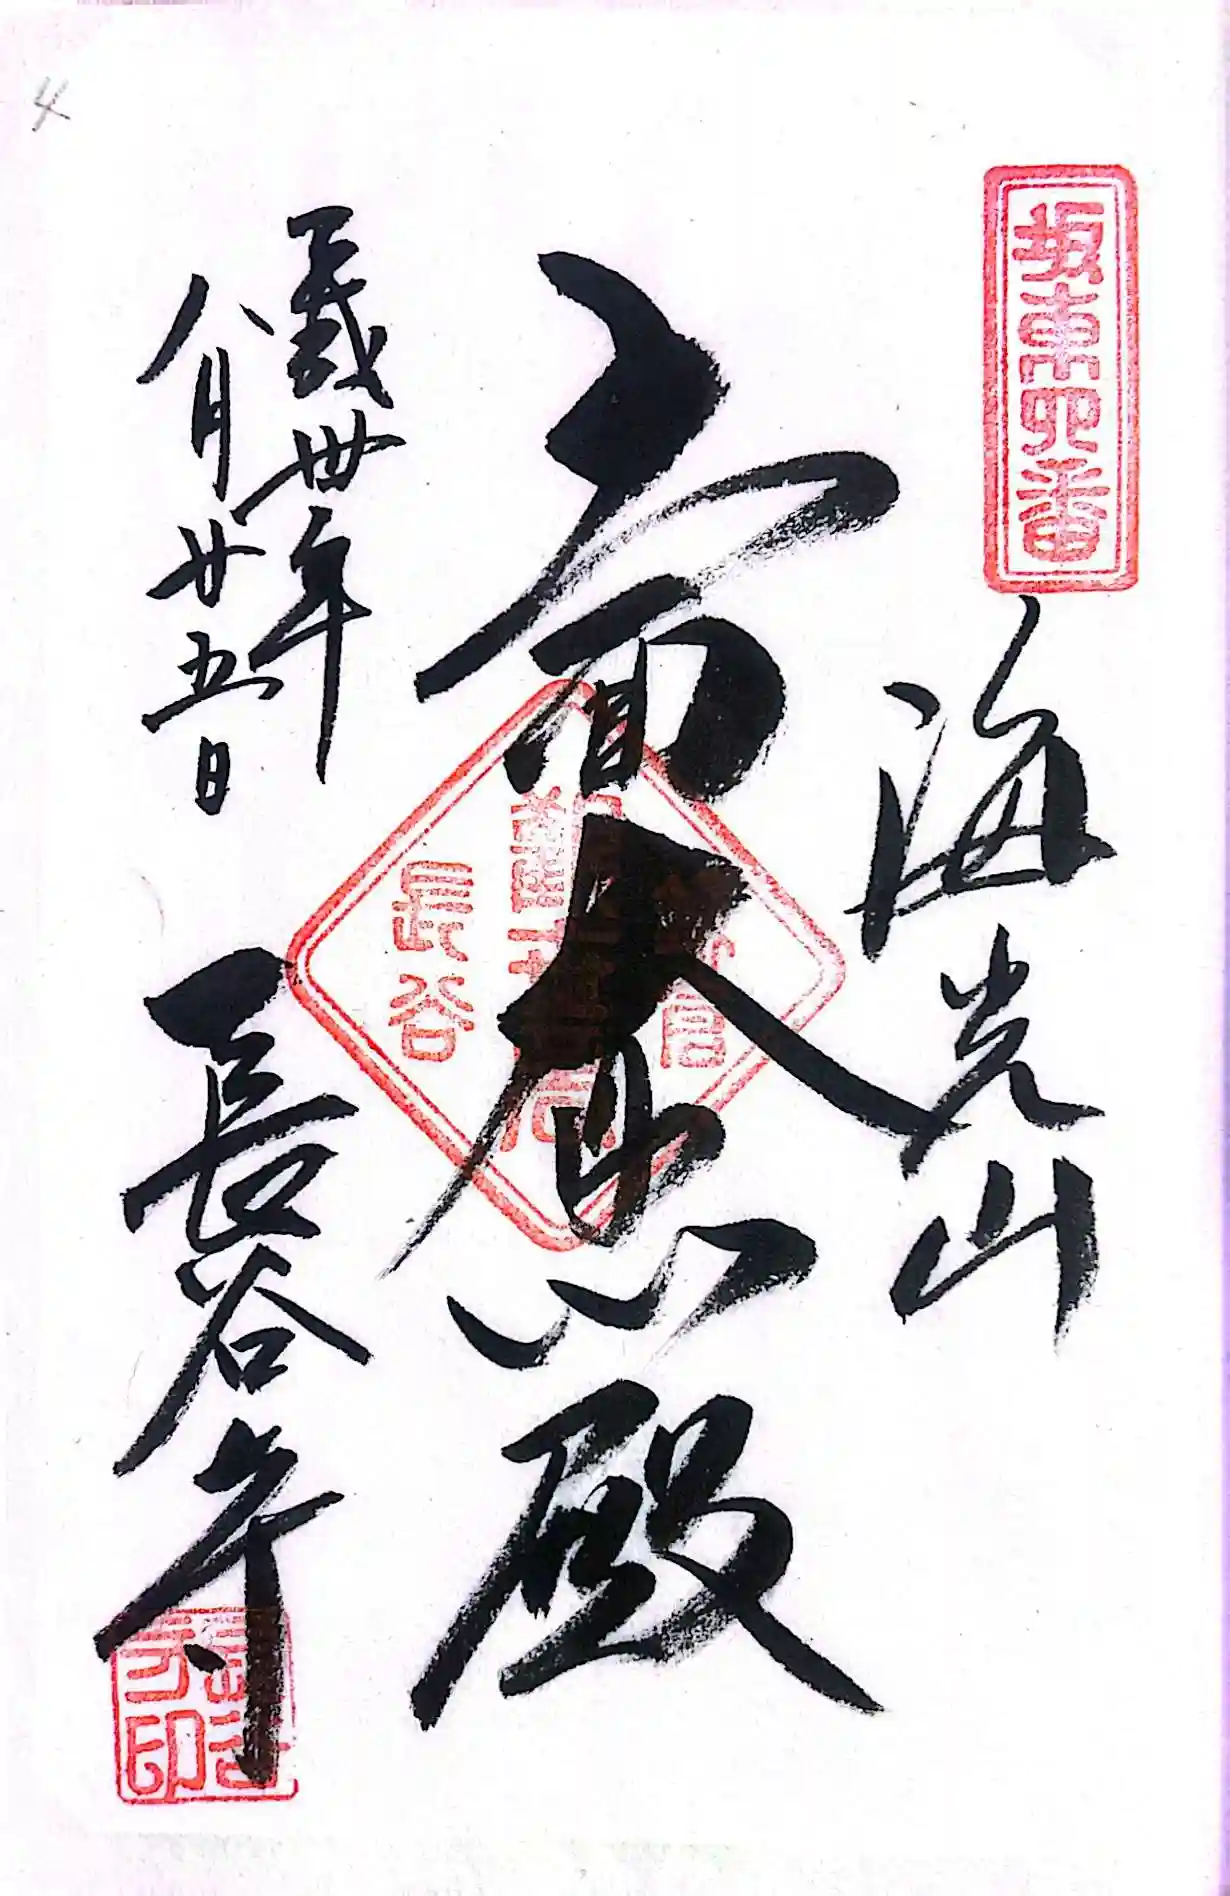 坂東四番
海光山
大悲殿
長谷
平成卅年
八月廿五日
長谷寺
4